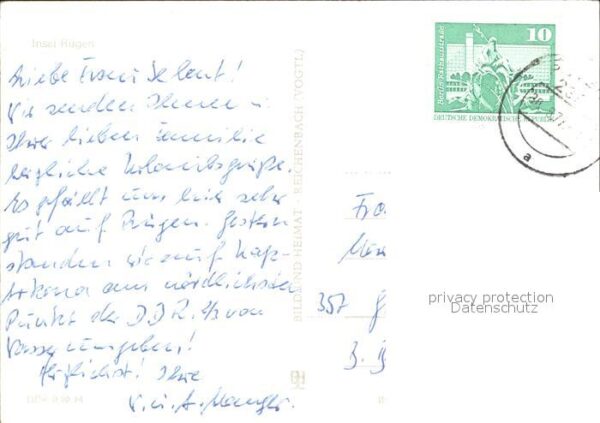 Insel Rügen
Liebe Frau
Wir senden Ihnen u.
Ihrer lieben Familie
herzliche Urlaubsgrüße.
Es gefällt uns hier sehr
gut auf Rügen. Gestern
standen wir auf Kap-
Arkona am nördlichsten
Punkt der DDR, 3/3 von
Wasser umgeben!
Herzlichst! Ihre
BILD UND HEIMAT · REICHENBACH (VOGTL.)
10
Berlin Rathausstraße
DEUTSCHE DEMOKRATISCHE REPUBLIK
a
357
privacy protection
Datenschutz